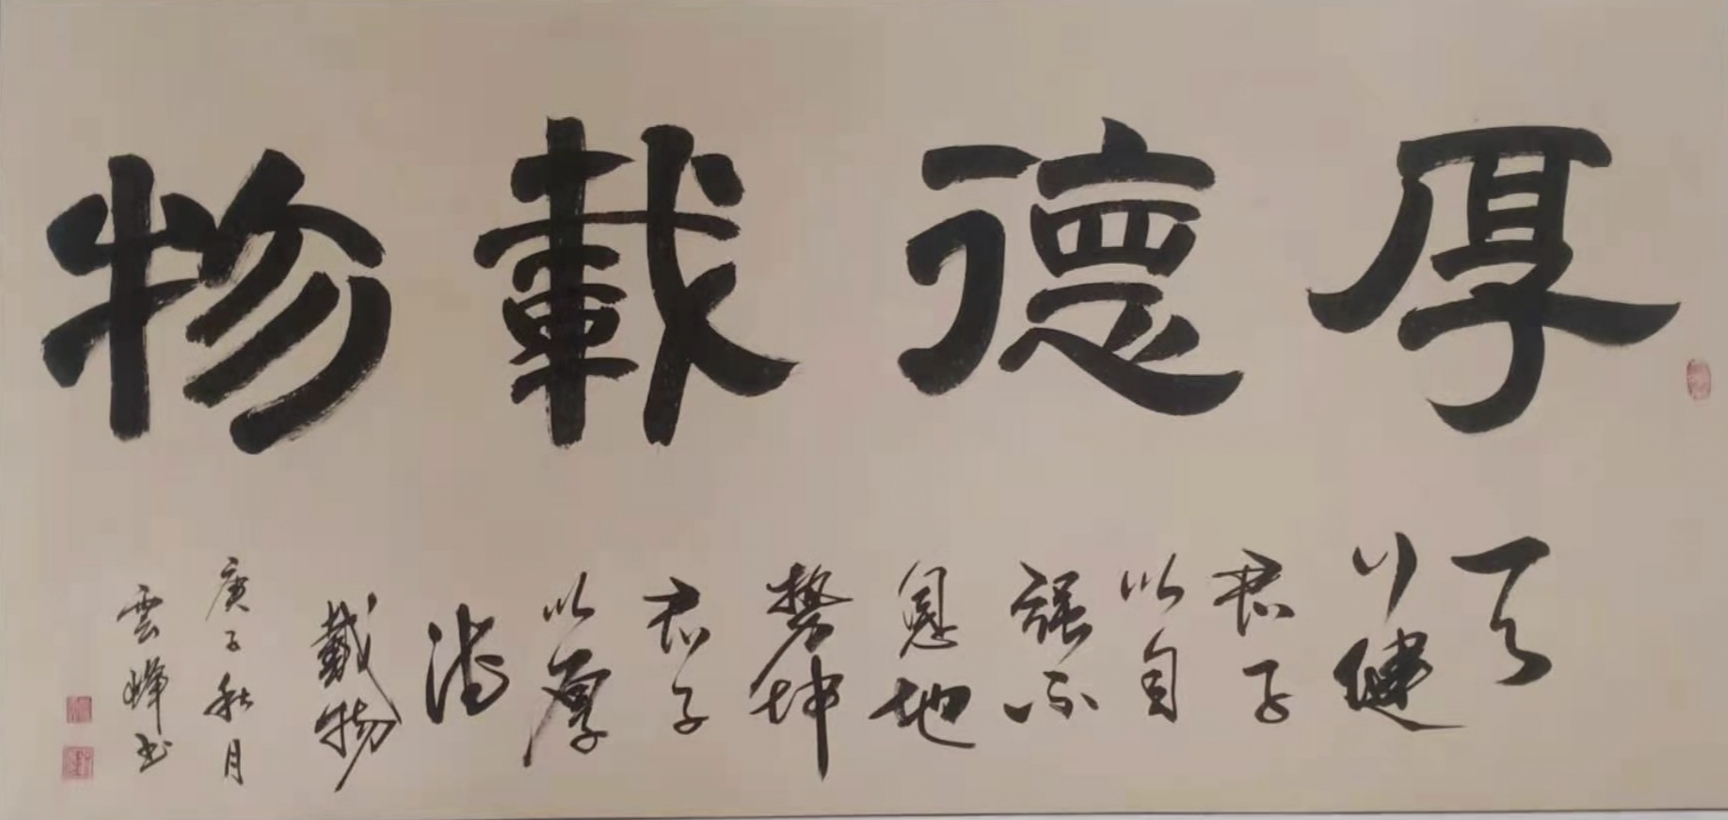 厚德載物
天
行健
君子
以自
强不
息地
勢坤
君子
以厚
德
載物
庚子秋月
雲峰书